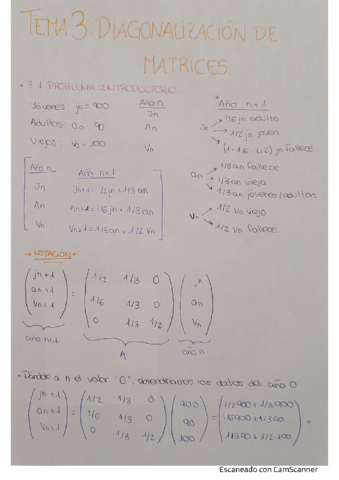 TEMA 3: DIAGONALIZACIÓN DE
MATRICES.
• 3.1 PROBLEMA INTRODUCTORIO.
Jóvenes: jo = 900
Adultos: ao: 90
Viejos: vo: 100
Año n
Jn
An
Vn
Año n+1
Jn
1/6 jn adulto
1/2 jn joven
(1 - 1/6 - 1/2) jn fallece
an
1/3 an fallece
1/3 an viejo
1/3 an jóvenes/adultos
Vn
1/2 Vn viejo
1/2 Vn fallece.
Año n
Año n+1
Jn
Jn+1 = 1/2 jn + 1/3 an
An
An+1 = 1/6 jn + 1/3 an
Vn
Vn+1 = 1/3 an + 1/2 Vn
→ NOTACIÓN ←
jn+1
an+1
Vn+1
=
1/2 1/3 0
1/6 1/3 0
0 1/3 1/2
jn
an
Vn
año n+1
A
año n
• Dándole a n el valor "0", obtendríamos los datos del año 0
jn+1
an+1
Vn+1
=
1/2 1/3 0
1/6 1/3 0
0 1/3 1/2
900
90
100
=
1/2 900 + 1/3 900
1/6 900 + 1/3 90
1/3 90 + 1/2 100
=
Escaneado con CamScanner